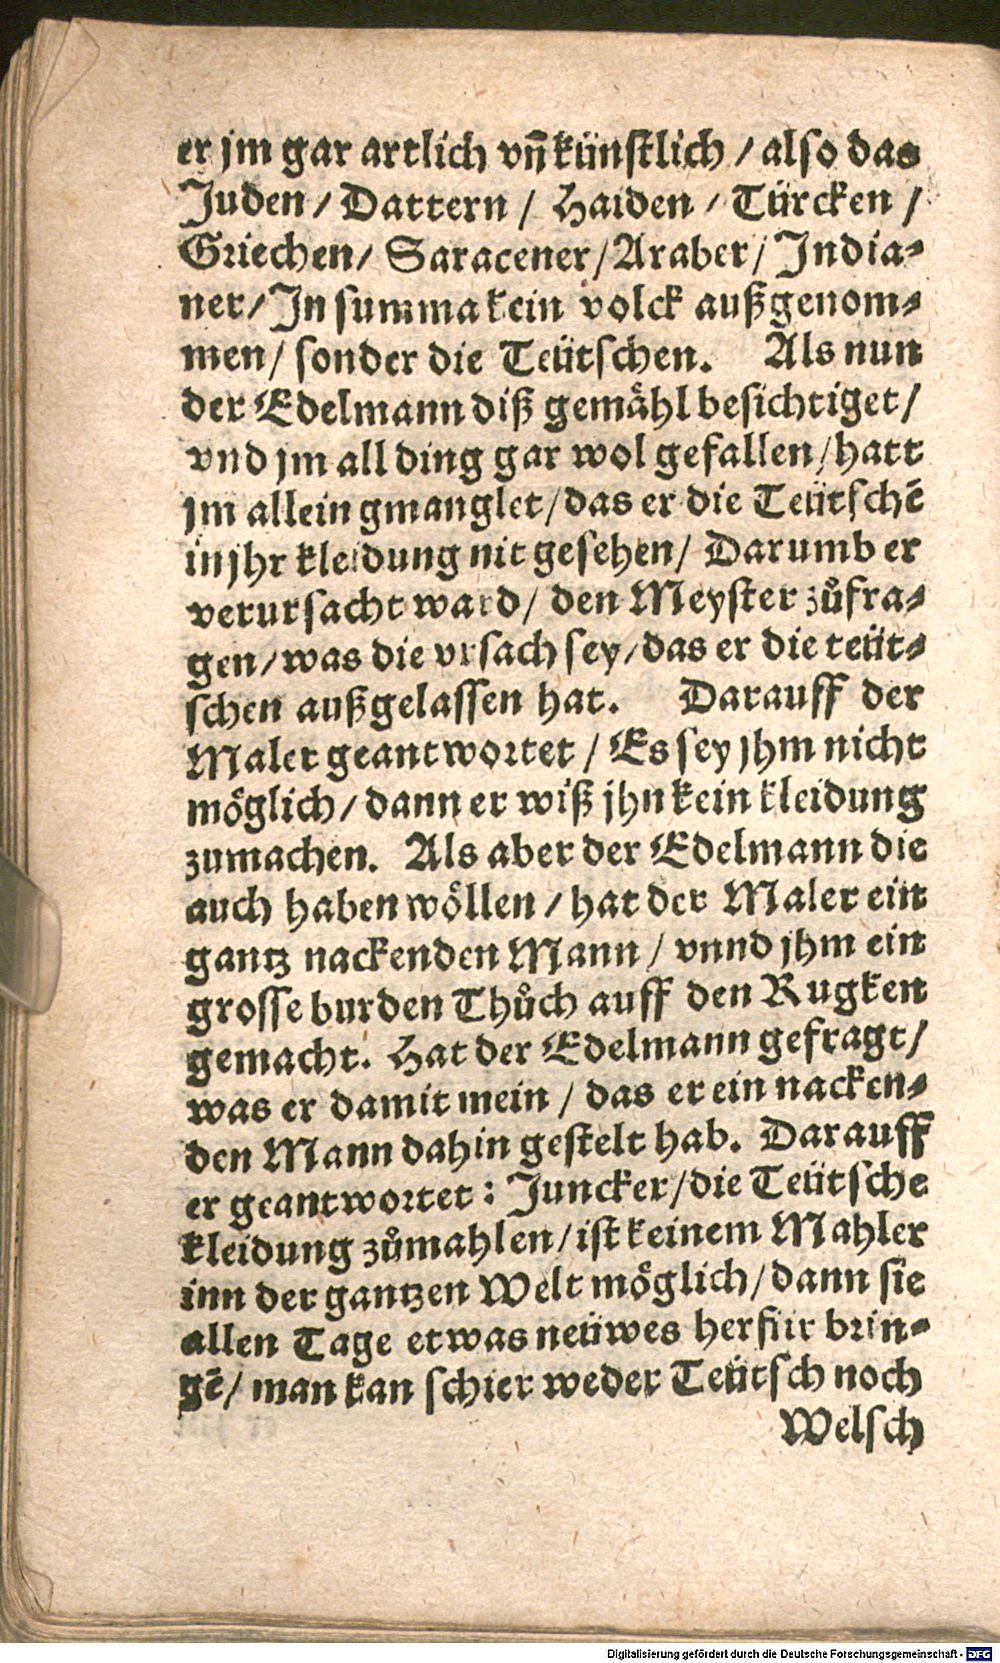 er jm gar artlich vñ künstlich / also das
Juden / Dattern / Haiden / Türcken /
Griechen / Saracener / Araber / India⸗
ner / In summa kein volck außgenom⸗
men / sonder die Teütschen. Als nun
der Edelmann diß gemähl besichtiget /
vnd jm all ding gar wol gefallen / hatt
jm allein gmanglet / das er die Teütschē
in jhr kleidung nit gesehen / Darumb er
verursacht ward / den Meyster zůfra⸗
gen / was die vrsach sey / das er die teüt⸗
schen außgelassen hat. Darauff der
Maler geantwortet / Es sey jhm nicht
möglich / dann er wiß jhn kein kleidung
zumachen. Als aber der Edelmann die
auch haben wöllen / hat der Maler ein
gantz nackenden Mann / vnnd jhm ein
grosse burden Thůch auff den Rugken
gemacht. Hat der Edelmann gefragt /
was er damit mein / das er ein nacken⸗
den Mann dahin gestelt hab. Darauff
er geantwortet : Juncker / die Teütsche
kleidung zůmahlen / ist keinem Mahler
inn der gantzen Welt möglich / dann sie
allen Tage etwas neüwes herfür brin⸗
gē / man kan schier weder Teütsch noch
Welsch
Digitalisierung gefördert durch die Deutsche Forschungsgemeinschaft - DFG